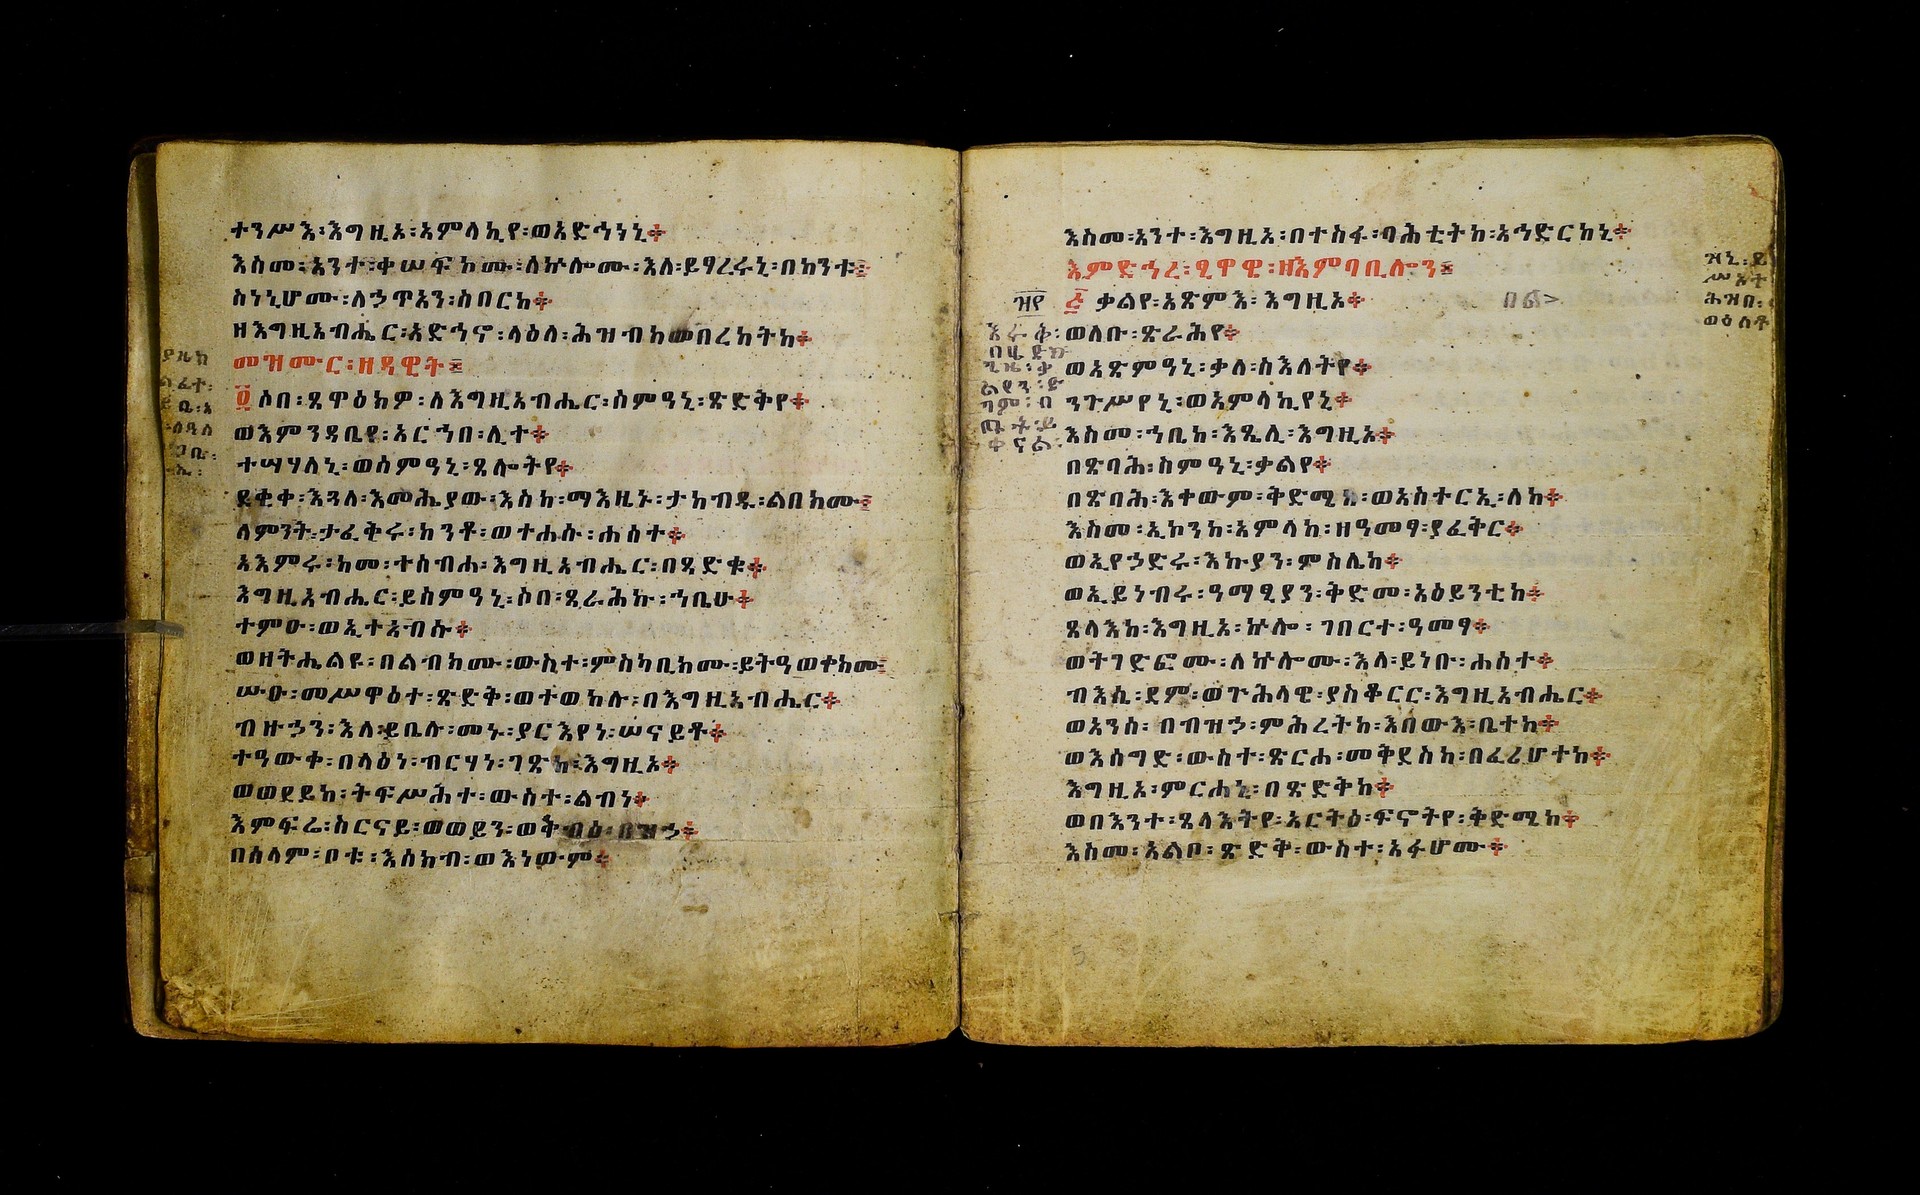 ተንሥእ፡እግዚኦ፡አምላኪየ፡ወአድኅነኒ፨
እስመ፡አንተ፡ቀሠፍኮሙ፡ለኵሎሙ፡እለ፡ይፃረሩኒ፡በከንቱ፤
ስነኒሆሙ፡ለኃጥአን፡ሰበርከ፨
ዘእግዚአብሔር፡አድኅኖ፡ላዕለ፡ሕዝብከ፡በረከትከ፨
መዝሙር፡ዘዳዊት፤
፬ ሶበ፡ጼዋዕክዎ፡ለእግዚአብሔር፡ስምዓኒ፡ጽድቅየ፨
ወእምንዳቤየ፡አርኀበ፡ሊተ፨
ተሣሃለኒ፡ወሰምዓኒ፡ጸሎትየ፨
ደቂቀ፡እጓለ፡እመሕያው፡እስከ፡ማእዜኑ፡ታከብዱ፡ልበክሙ፤
ለምንት፡ታፈቅሩ፡ከንቶ፡ወተሐሱ፡ሐሰተ፨
አእምሩ፡ከመ፡ተሰብሐ፡እግዚአብሔር፡በጻድቁ፨
እግዚአብሔር፡ይሰምዓኒ፡ሶበ፡ጸራሕኩ፡ኀቤሁ፨
ተምዑ፡ወኢተአብሱ፨
ወዘትሔልዩ፡በልብክሙ፡ውስተ፡ምስካቢክሙ፡ይትዓወቀክሙ፤
ሡዑ፡መሥዋዕተ፡ጽድቅ፡ወተወከሉ፡በእግዚአብሔር፨
ብዙኃን፡እለ፡ይቤሉ፡መኑ፡ያርእየነ፡ሠናይቶ፨
ተዓውቀ፡በላዕነ፡ብርሃነ፡ገጽከ፡እግዚኦ፨
ወወደይከ፡ትፍሥሕተ፡ውስተ፡ልብነ፨
እምፍሬ፡ስርናይ፡ወወይን፡ወቅብዕ፡በዝኃ፨
በሰላም፡ቦቱ፡እሰክብ፡ወእነውም፨
እስመ፡አንተ፡እግዚኦ፡በተስፋ፡ባሕቲትከ፡አኅድርከኒ፨
እምድኅረ፡ፂዋዊ፡ዘእምባቢሎን፤
፭ ቃልየ፡አጽምእ፡እግዚኦ፨
ወለቡ፡ጽራሕየ፨
ወአጽምዓኒ፡ቃለ፡ስእለትየ፨
ንጉሥየኒ፡ወአምላኪየኒ፨
እስመ፡ኀቤከ፡እጼሊ፡እግዚኦ፨
በጽባሕ፡ስምዓኒ፡ቃልየ፨
በጽባሕ፡እቀውም፡ቅድሜከ፡ወአስተርኢ፡ለከ፨
እስመ፡ኢኮንከ፡አምላከ፡ዘዓመፃ፡ያፈቅር፨
ወኢየኃድሩ፡እኩያን፡ምስሌከ፨
ወኢይነብሩ፡ዓማፂያን፡ቅድመ፡አዕይንቲከ፨
ጸላእከ፡እግዚኦ፡ኵሎ፡ገበርተ፡ዓመፃ፨
ወትገድፎሙ፡ለኵሎሙ፡እለ፡ይነቡ፡ሐሰተ፨
ብእሲ፡ደም፡ወጕሕላዊ፡ያስቆርር፡እግዚአብሔር፨
ወአንሰ፡በብዝኃ፡ምሕረትከ፡እበውእ፡ቤተከ፨
ወእሰግድ፡ውስተ፡ጽርሐ፡መቅደስከ፡በፈሪሆተከ፨
እግዚኦ፡ምርሐኒ፡በጽድቅከ፨
ወበእንተ፡ጸላእትየ፡አርትዕ፡ፍኖትየ፡ቅድሜከ፨
እስመ፡አልቦ፡ጽድቅ፡ውስተ፡አፉሆሙ፨
5